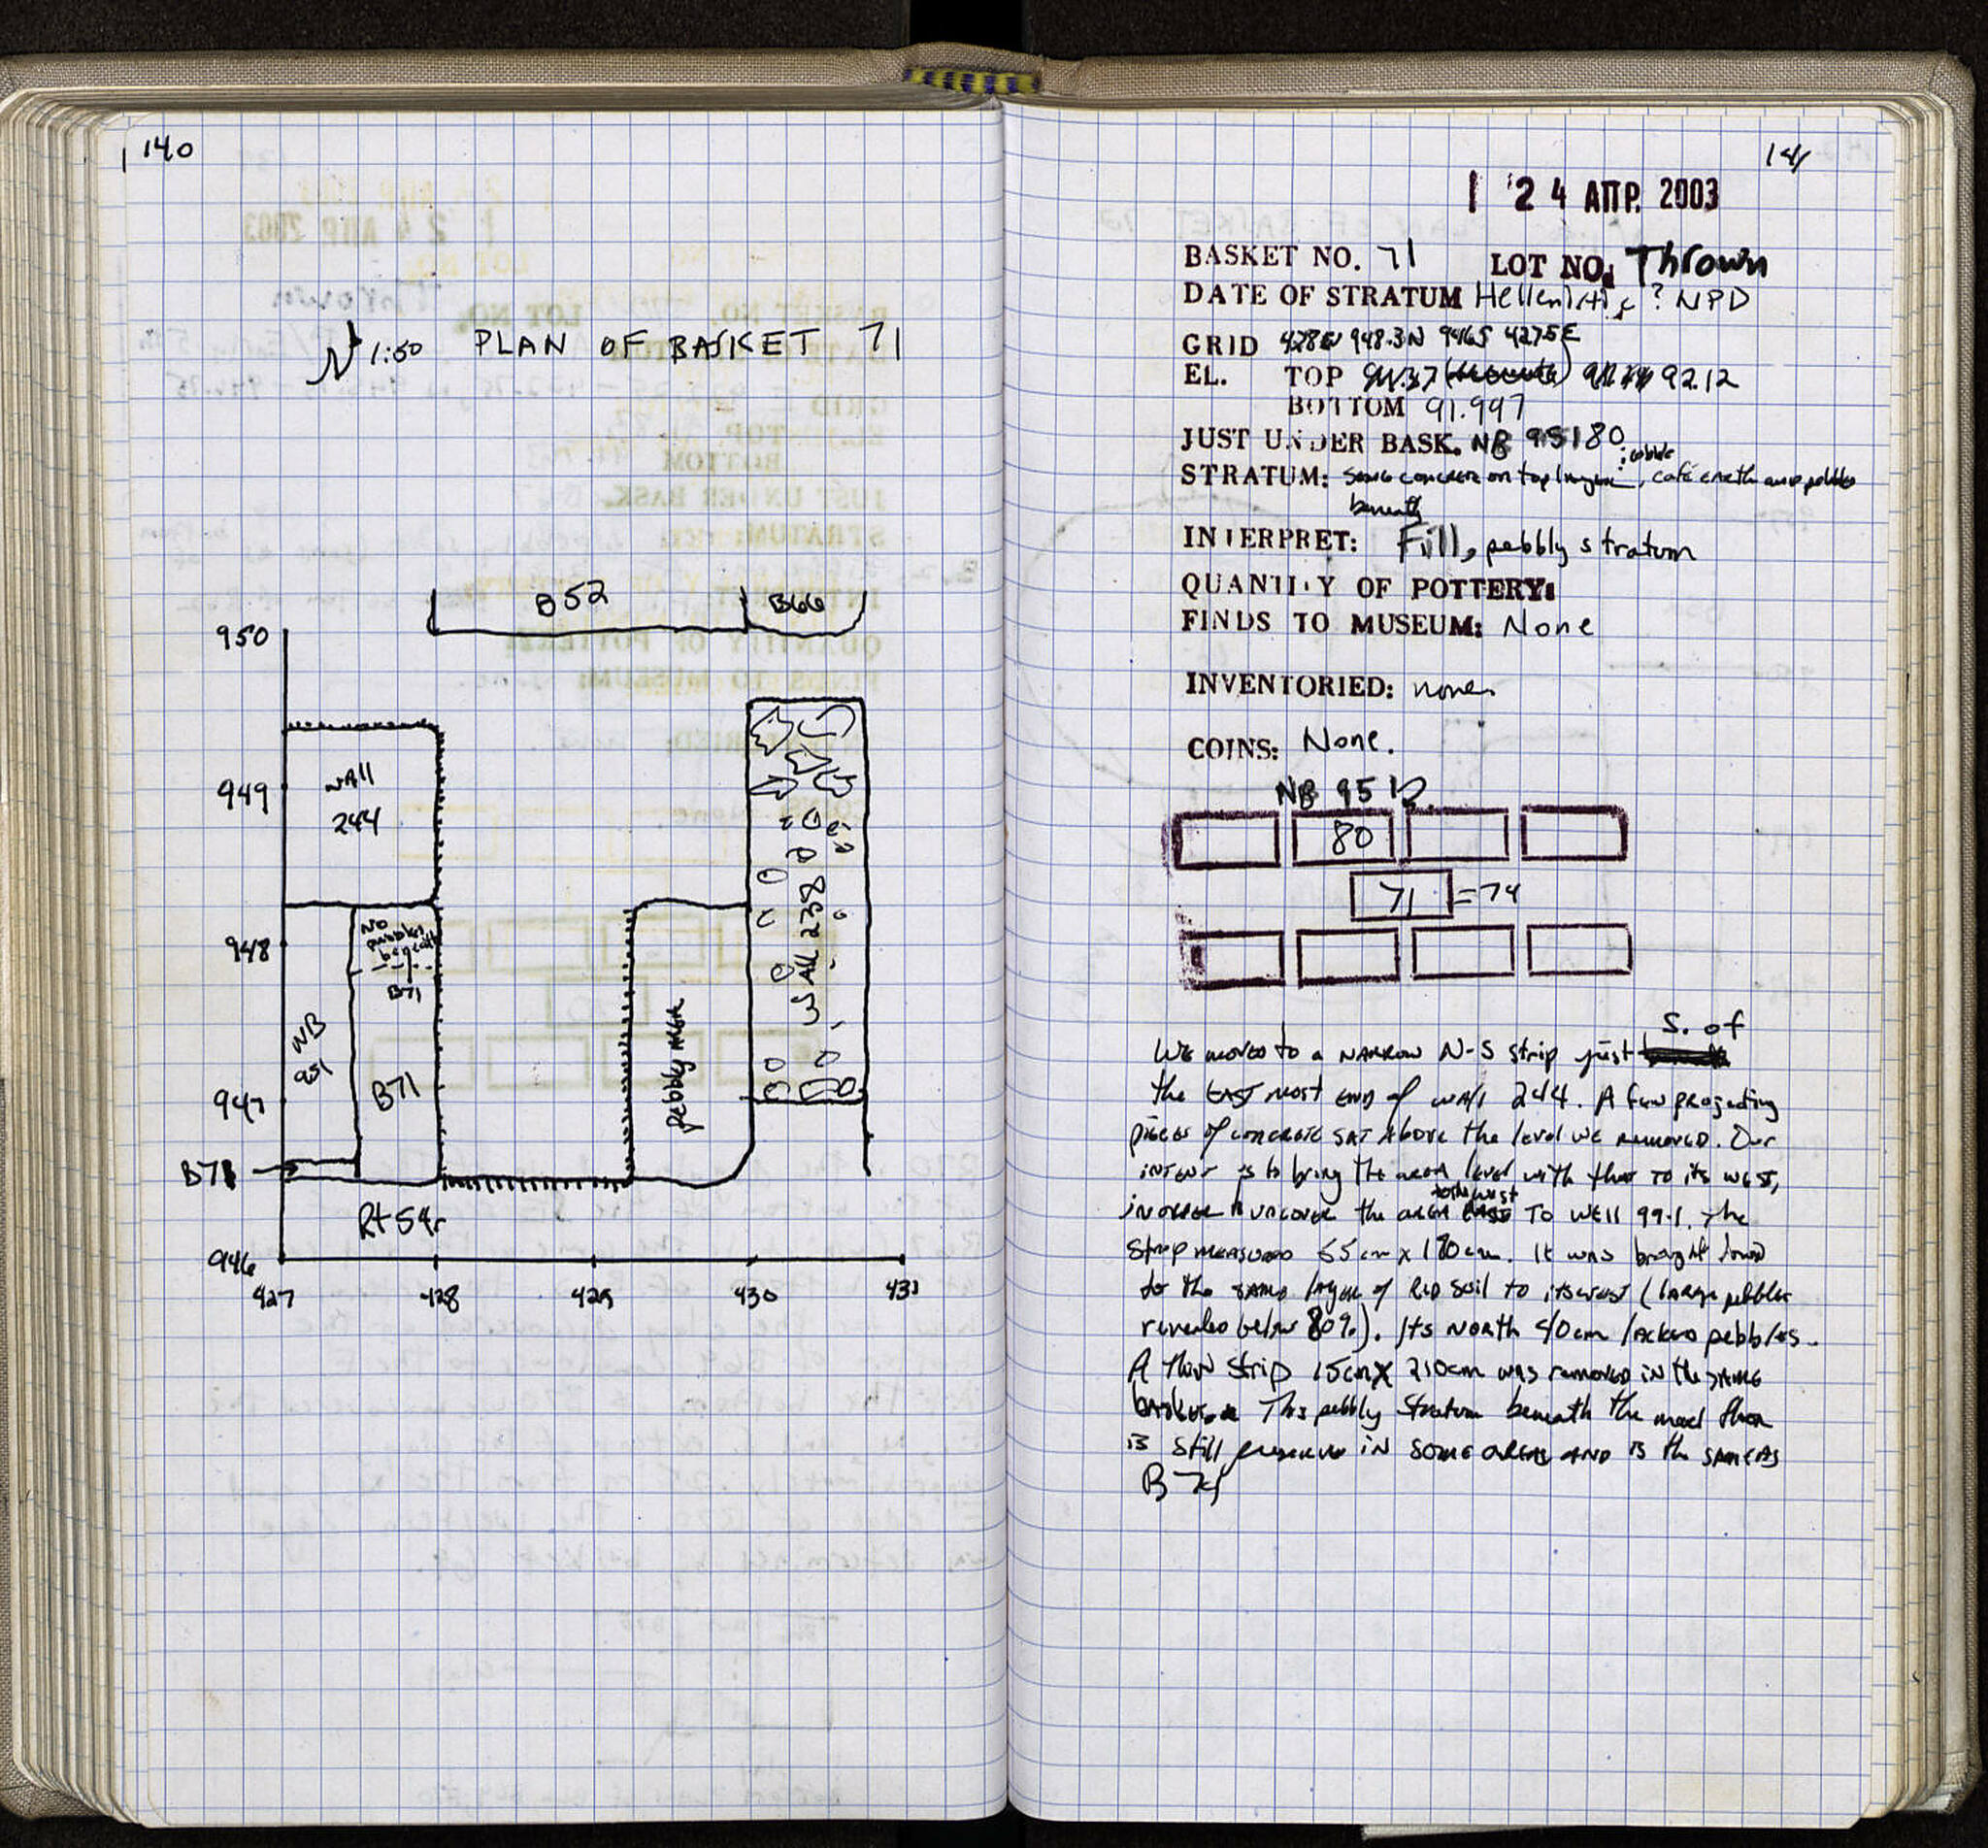 140
N 1:50 PLAN OF BASKET 71
B52
B66
950
949
948
947
946
WAll
244
No
pebbles
beneath
B71
NB
951
B71
B71
Pit 54
pebbly area
WAll 238
427
428
429
430
431
141
24 ΑΠΡ. 2003
BASKET NO. 71 LOT NO. Thrown
DATE OF STRATUM Hellenistic? NPD
GRID 428E 948.3N 946S 427.5E
EL. TOP 92.12
BOTTOM 91.997
JUST UNDER BASK. NB 951 80
STRATUM: some concrete on top, café earth and pebbles
beneath
INTERPRET: Fill, pebbly stratum
QUANTITY OF POTTERY:
FINDS TO MUSEUM: None
INVENTORIED: none.
COINS: None.
NB 951
80
71 = 74
S. of
We moved to a narrow N-S strip just
the EAST most end of wall 244. A few projecting
pieces of concrete sat above the level we removed. Our
intent is to bring the area level with that to its west,
to the west
in order to uncover the area to well 99-1. The
strip measured 55 cm x 180 cm. It was brought down
to the same layer of red soil to its west (large pebbles
revealed below 80%). Its north 40cm lacked pebbles.
A thin strip 15cm x 210cm was removed in the same
basket. This pebbly stratum beneath the mud floor
is still preserved in some areas and is the same as
B 74